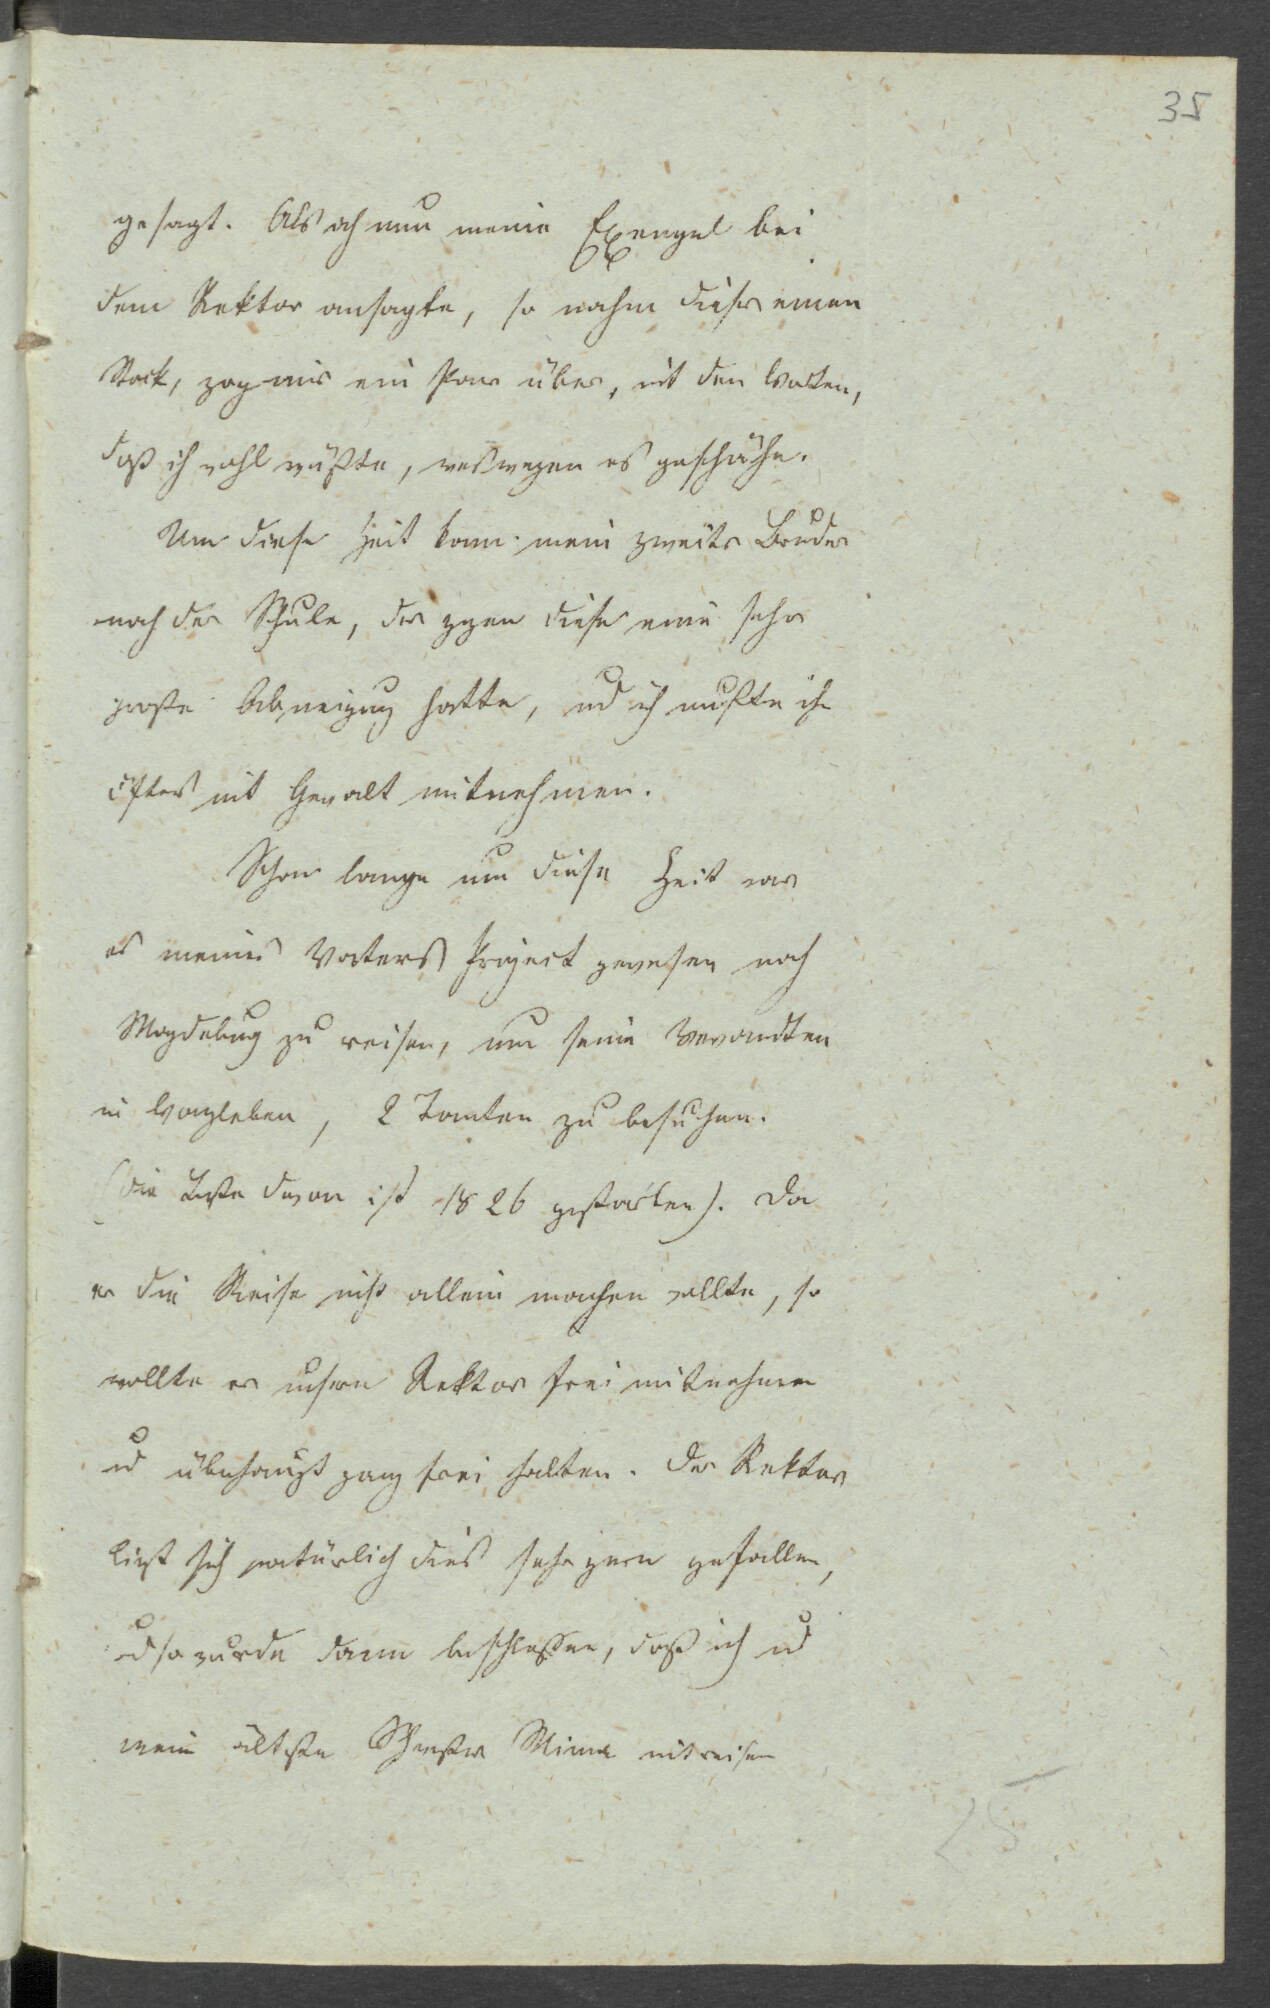 35
gesagt. Als ich nun meine Exempel bei
dem Rektor aufsagte, so nahm dieser einen
Stock, zog mir ein Paar über, mit den Worten,
daß ich wohl wüßte, weßwegen es geschähe.
Um diese Zeit kam mein zweiter Bruder
nach der Schule, der gegen diese eine sehr
große Abneigung hatte, und ich mußte ihn
öfters mit Gewalt mitnehmen.
Schon lange um diese Zeit war
es meines Vaters Project gewesen nach
Magdeburg zu reisen, um seine Verwandten
in 2 Tanten zu besuchen.
(die letzte davon ist 1826 gestorben). Da
er die Reise nicht allein machen wollte, so
wollte er unsern Rektor frei mitnehmen
und überhaupt ganz frei halten. Der Rektor
ließ sich natürlich dies sehr gern gefallen,
und so wurde denn beschlossen, daß ich und
mein älteste Schwester Mine mitreisen
25